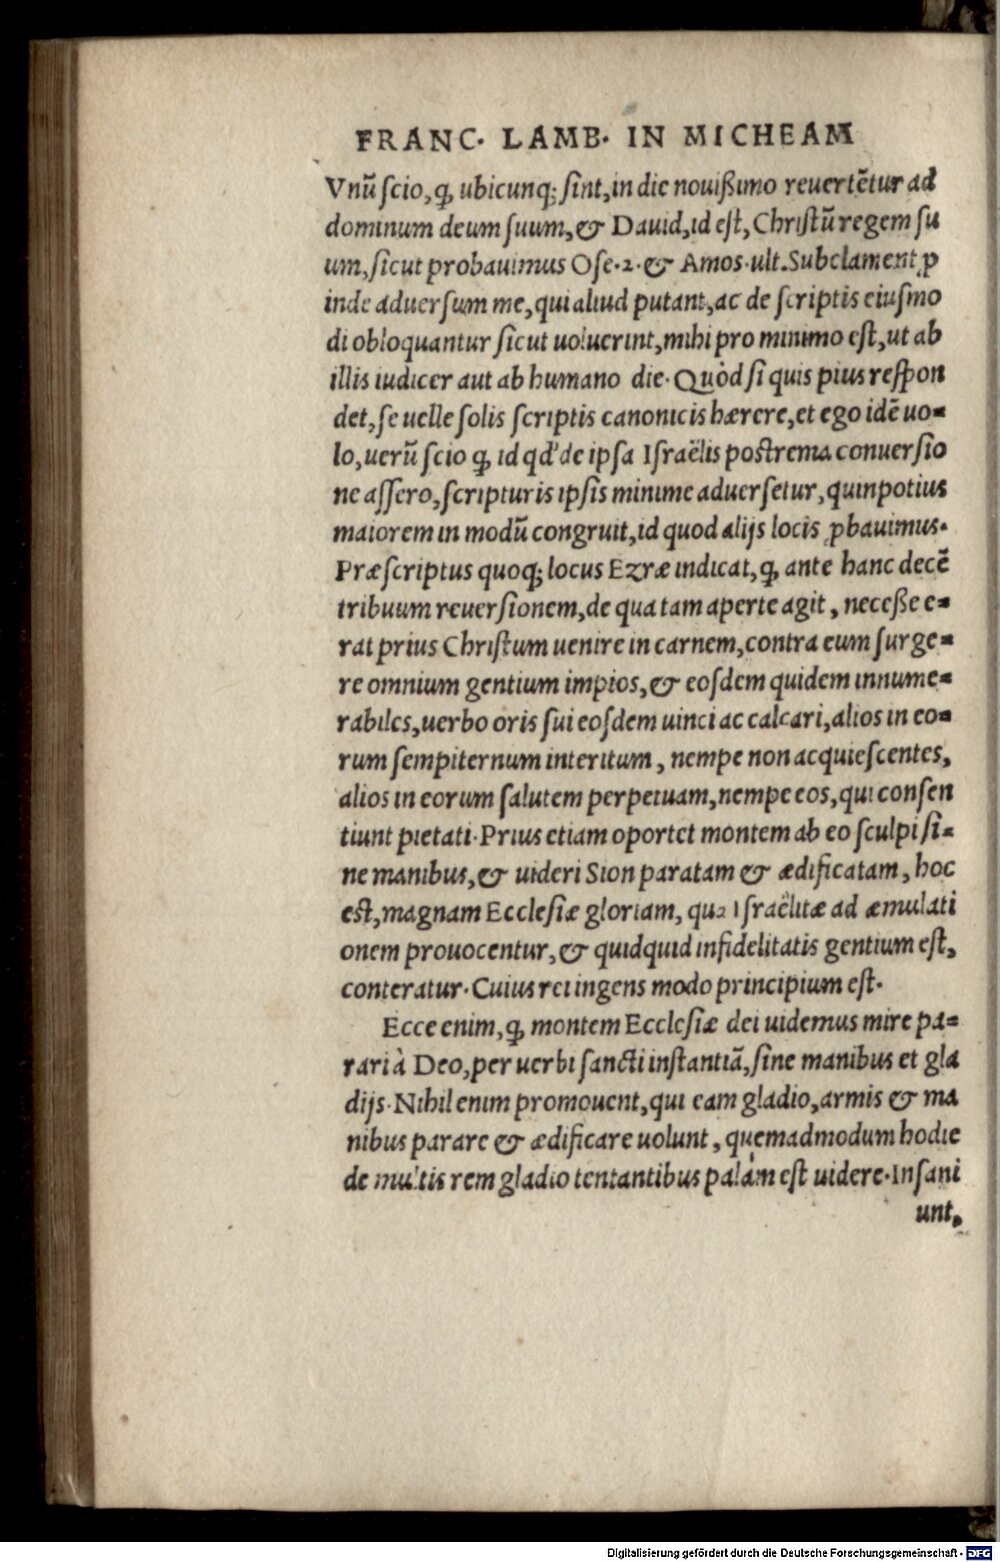 FRANC. LAMB. IN MICHEAM
Vnũ ſcio, ꝙ ubicunq; ſint, in die nouißimo reuertētur ad
dominum deum ſuum, & Dauid, id eſt, Chriſtũ regem ſu
um, ſicut probauimus Oſe. 2. & Amos. ult. Subclament ꝓ
inde aduerſum me, qui aliud putant, ac de ſcriptis eiuſmo
di obloquantur ſicut uoluerint, mihi pro minimo eſt, ut ab
illis iudicer aut ab humano die. Quòd ſi quis pius reſpon
det, ſe uelle ſolis ſcriptis canonicis hærere, et ego idē uo=
lo, uerũ ſcio ꝙ id qd' de ipſa Iſraëlis poſtrema conuerſio
ne aſſero, ſcripturis ipſis minime aduerſetur, quinpotius
maiorem in modũ congruit, id quod alijs locis ꝓbauimus.
Præſcriptus quoq; locus Ezræ indicat, ꝙ ante hanc decē
tribuum reuerſionem, de qua tam aperte agit, neceße e=
rat prius Chriſtum uenire in carnem, contra eum ſurge=
re omnium gentium impios, & eoſdem quidem innume=
rabiles, uerbo oris ſui eoſdem uinci ac calcari, alios in eo=
rum ſempiternum interitum, nempe non acquieſcentes,
alios in eorum ſalutem perpetuam, nempe eos, qui conſen
tiunt pietati. Prius etiam oportet montem ab eo ſculpi ſi=
ne manibus, & uideri Sion paratam & ædificatam, hoc
eſt, magnam Eccleſiæ gloriam, qua Iſraëlitæ ad æmulati
onem prouocentur, & quidquid infidelitatis gentium eſt,
conteratur. Cuius rei ingens modo principium eſt.
Ecce enim, ꝙ montem Eccleſiæ dei uidemus mire pa=
rari à Deo, per uerbi ſancti inſtantiã, ſine manibus et gla
dijs. Nihil enim promouent, qui eam gladio, armis & ma
nibus parare & ædificare uolunt, quemadmodum hodie
de multis rem gladio tentantibus palàm eſt uidere. Inſani
unt,
Digitalisierung gefördert durch die Deutsche Forschungsgemeinschaft - DFG